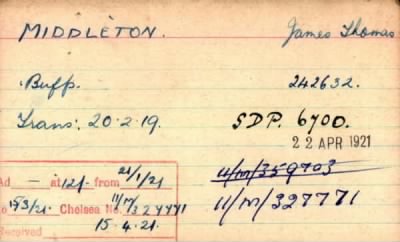 MIDDLETON. James Thomas
Buffs. 242632.
Trans: 20.2.19. SDP. 6700.
22 APR 1921
Ad — at 12/- from 21/1/21 11/M/359703
to 19/3/21. Chelsea No. 11/M/327771 11/M/327771
Received 15.4.21.